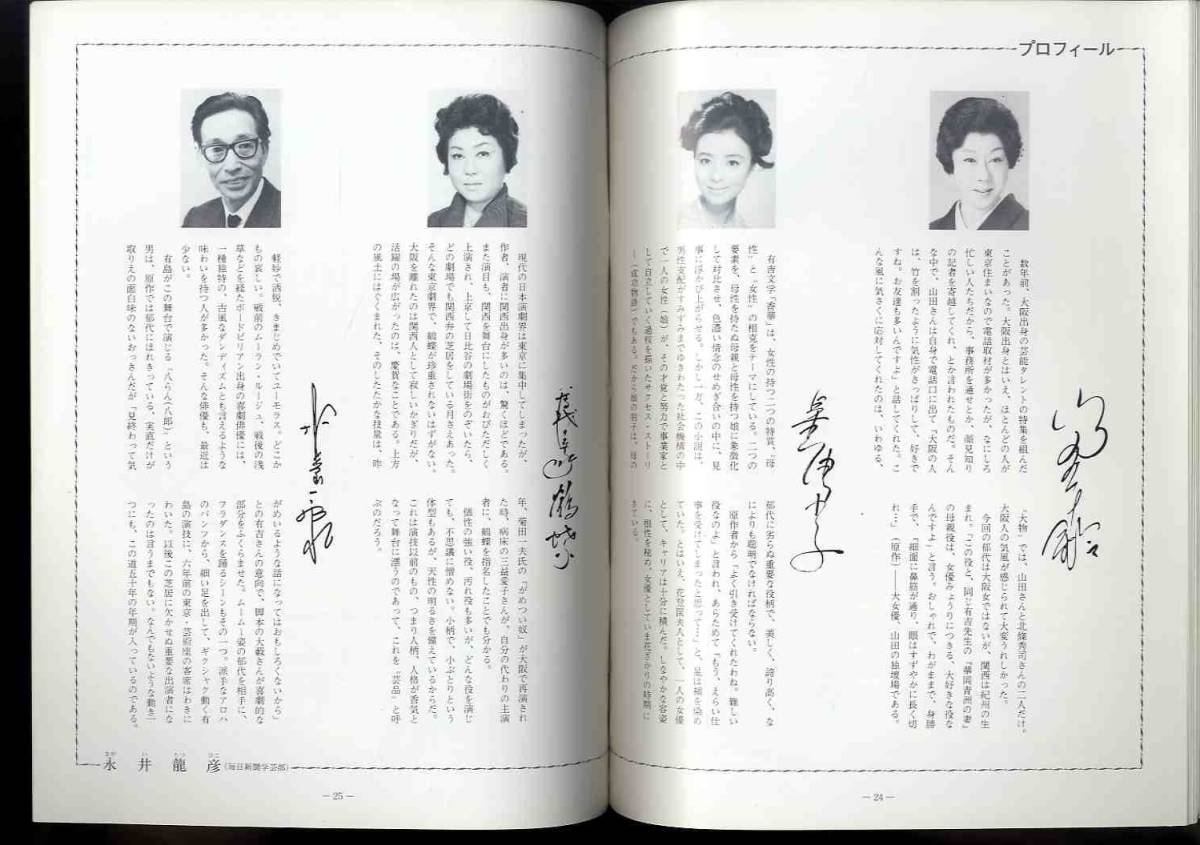 プロフィール
数年前、大阪出身の芸能タレントの特集を組んだ
ことがあった。大阪出身とはいえ、ほとんどの人が
東京住まいなので電話取材が多かったが、なにしろ
忙しい人たちだから、事務所を通せとか、顔見知り
の記者を寄越してくれ、とか言われたものだ。そん
な中で、山田さんは自身で電話口に出て「大阪の人
は、竹を割ったように気性がさっぱりして、好きで
すね。お友達も多いんですよ」と話してくれた。こ
んな風に気さくに応対してくれたのは、いわゆる、
“大物”では、山田さんと北條秀司さんの二人だけ。
大阪人の気風が感じられて大変うれしかった。
今回の郁代は大阪女ではないが、関西は紀州の生
まれ。「この役と、同じ有吉先生の『華岡青洲の妻』
の母親役は、女優みょうりにつきる、大好きな役な
んですよ」と言う。おしゃれで、わがままで、身勝
手で、「細面に鼻筋が通り、眼はすずやかに長く切
れ…」（原作）――大女優、山田の独壇場である。
有吉文学「香華」は、女性の持つ二つの特質、“母
性”と“女性”の相克をテーマにしている。二つの
要素を、母性を持たぬ母親と母性を持つ娘に象徴化
して対比させ、色濃い情念のせめぎ合いの中に、見
事に浮かび上がらせる。しかし一方、この小説は、
男性支配がすみずみまでゆきわたった社会機構の中
で一人の女性（娘）が、その才覚と努力で事業家と
して自立していく過程を描いたサクセス・ストーリ
ー（成功物語）でもある。だから娘の朋子は、母の
郁代に劣らぬ重要な役柄で、美しく、誇り高く、な
によりも聡明でなければならない。
原作者から「よく引き受けてくれたわね。難しい
役なのよ」と言われ、あらためて「もう、えらい仕
事を受けてしまったと思って…」と、是は頬を染め
ていた。とはいえ、花登筺夫人として、一人の女優
として、キャリアは十分に積んだ。しなやかな容姿
に、根性を秘め、女優としていま花ざかりの時期に
きている。
－24－
現代の日本演劇界は東京に集中してしまったが、
作者、演者に関西出身が多いのは、驚くほどである。
また演目も、関西を舞台にしたものがおびただしく
上演され、上京して日比谷の劇場街をのぞいたら、
どの劇場でも関西弁の芝居をしている月さえあった。
そんな東京劇界で、鶴蝶が珍重されないはずがない。
大阪を離れたのは関西人として寂しいかぎりだが、
活躍の場が広がったのは、慶賀なことである。上方
の風土にはぐくまれた、そのしたたかな技量は、昨
年、菊田一夫氏の「がめつい奴」が大阪で再演され
た時、病床の三益愛子さんが、自分の代わりの主演
者に、鶴蝶を指名したことでも分かる。
個性の強い役、汚れ役も多いが、どんな役を演じ
ても、不思議に憎めない。小柄で、小ぶとりという
体型もあるが、天性の明るさを備えているからだ。
これは演技以前のもの、つまり人柄、人格が香気と
なって舞台に漂うのであって、これを“芸品”と呼
ぶのだろう。
軽妙で洒脱、きまじめでいてユーモラス。どこか
もの哀しい。戦前のムーラン・ルージュ、戦後の浅
草などを経たボードビリアン出身の喜劇俳優には、
一種独特の、古風なダンディズムとも言えるような
味わいを持つ人が多かった。そんな俳優も、最近は
少ない。
有島がこの舞台で演じる「八らん（八郎）」という
男は、原作では郁代にほれきっている、実直だけが
取りえの面白味のないおっさんだが「見終わって気
がめいるような話になってはおもしろくないから」
との有吉さんの意向で、脚本の大藪さんが喜劇的な
部分をふくらませた。ムームー姿の郁代を相手に、
フラダンスを踊るシーンもその一つ。派手なアロハ
のパンツから、細い足を出して、ギクシャク動く有
島の演技に、六年前の東京・芸術座の客席はわきに
わいた。以後この芝居に欠かせぬ重要な出演者にな
ったのは言うまでもない。なんでもないような動き一
つにも、この道五十年の年期が入っているのである。
永井龍彦（毎日新聞学芸部）
－25－